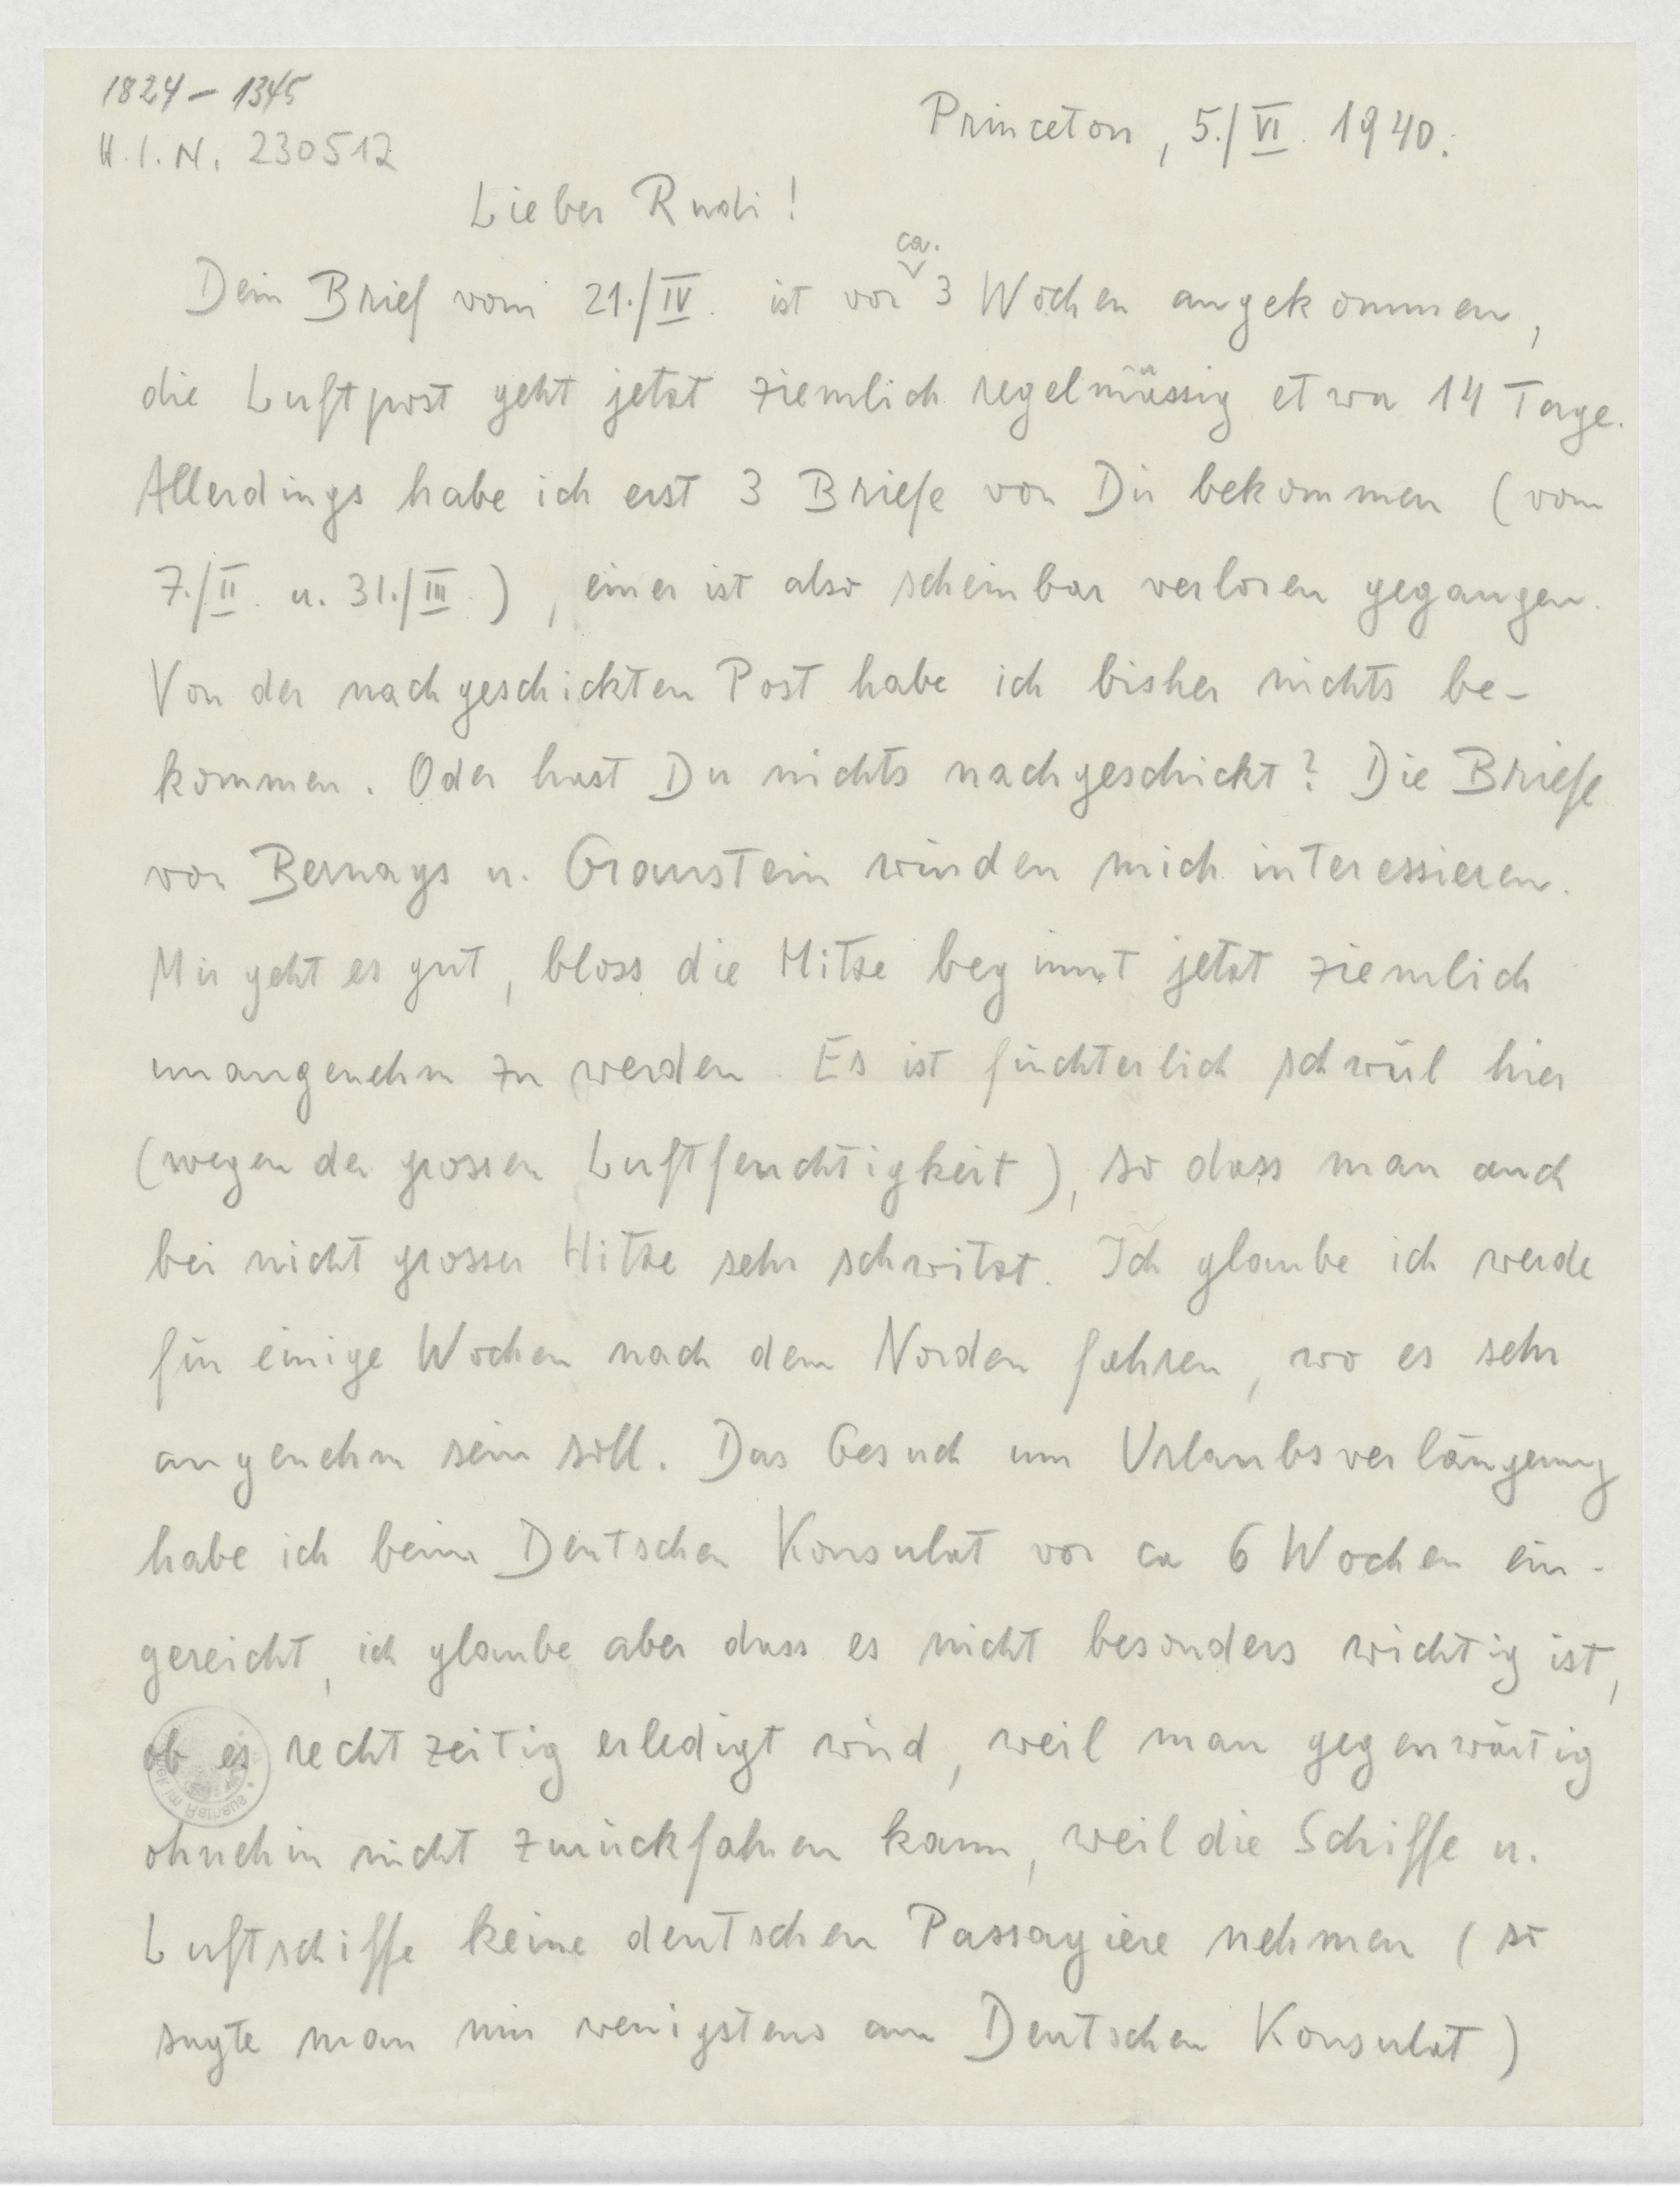 1824 – 1345
H.I.N. 230512
Princeton, 5./VI. 1940.
Lieber Rudi!
ca.
Dein Brief vom 21./IV. ist vor 3 Wochen angekommen,
die Luftpost geht jetzt ziemlich regelmässig etwa 14 Tage.
Allerdings habe ich erst 3 Briefe von Dir bekommen (vom
7./II. u. 31./III.), einer ist also scheinbar verloren gegangen.
Von der nachgeschickten Post habe ich bisher nichts be-
kommen. Oder hast Du nichts nachgeschickt? Die Briefe
von Bernays u. Graustein würden mich interessieren.
Mir geht es gut, bloss die Hitze beginnt jetzt ziemlich
unangenehm zu werden. Es ist fürchterlich schwül hier
(wegen der grossen Luftfeuchtigkeit), so dass man auch
bei nicht grosser Hitze sehr schwitzt. Ich glaube ich werde
für einige Wochen nach dem Norden fahren, wo es sehr
angenehm sein soll. Das Gesuch um Urlaubsverlängerung
habe ich beim Deutschen Konsulat vor ca 6 Wochen ein-
gereicht, ich glaube aber dass es nicht besonders wichtig ist,
ob es rechtzeitig erledigt wird, weil man gegenwärtig
ohnehin nicht zurückfahren kann, weil die Schiffe u.
Luftschiffe keine deutschen Passagiere nehmen (so
sagte man mir wenigstens am Deutschen Konsulat)